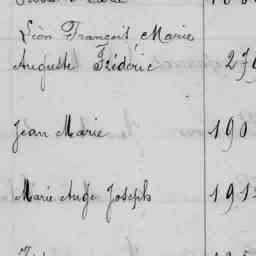 Léon François Marie
Auguste Frédéric 276
Jean Marie 190
Marie Ange Joseph 191